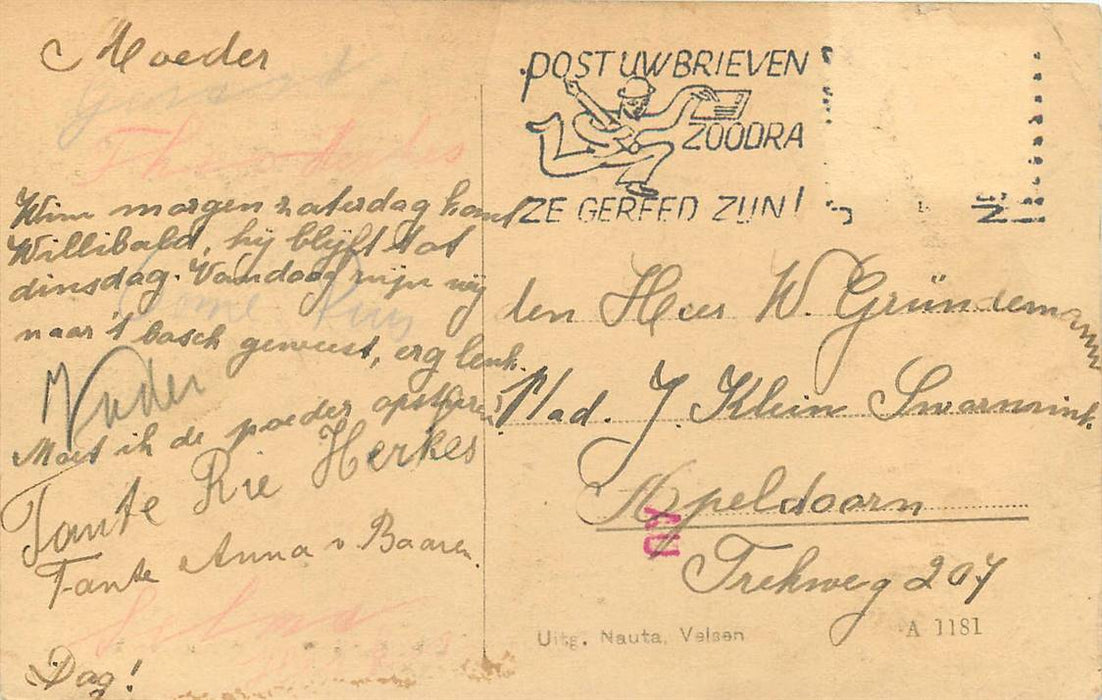 Moeder
Wim morgen zaterdag komt
Willibald, hij blijft tot
dinsdag. Vandaag zijn wij
naar 't bosch geweest, erg leuk.
Vader
Moet ik de poeder opsturen?
Tante Rie Herkes
Tante Anna v Baaren
Dag!
POST UW BRIEVEN
ZOODRA
ZE GEREED ZIJN!
den Heer W. Gründemann
P/ad. J. Klein Swormink
Apeldoorn
Trekweg 207
Uitg. Nauta, Velsen
A 1181